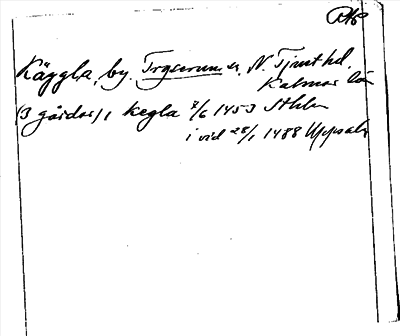 Käggla, by. Tryserum s. N. Tjust hd.
Kalmar län
(3 gårdar), i kegla 8/6 1453 Sthlm
i vid 28/1 1488 Uppsala